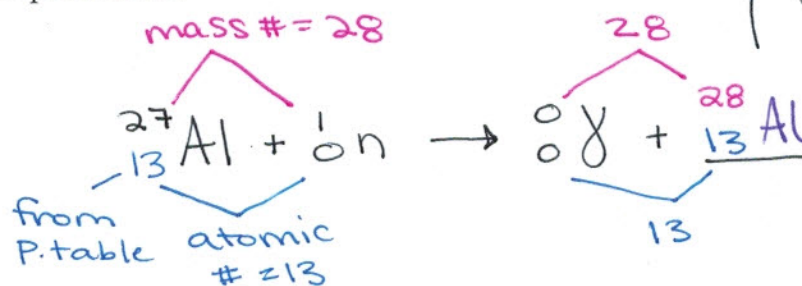 mass # = 28
28
²⁷₁₃Al + ¹₀n → ⁰₀γ + ²⁸₁₃Al
from
P.table
atomic
# = 13
13